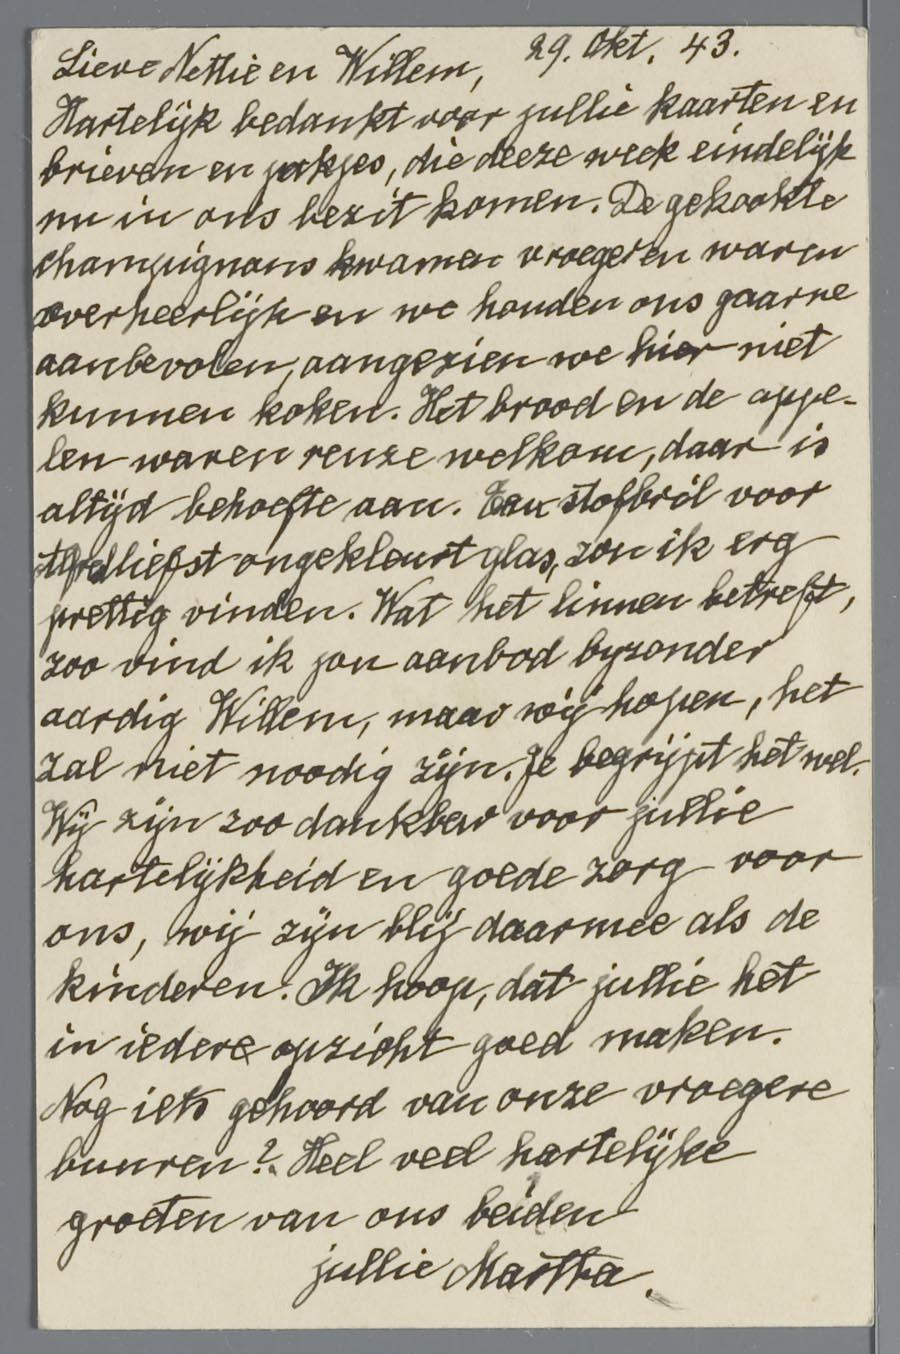 Lieve Nettie en Willem, 29. Okt. 43.
Hartelijk bedankt voor jullie kaarten en
brieven en pakjes, die deeze week eindelijk
nu in ons bezit komen. De gekookte
champignons kwamen vroeger en waren
overheerlijk en we houden ons gaarne
aanbevolen, aangezien we hier niet
kunnen koken. Het brood en de appe-
len waren reuze welkom, daar is
altijd behoefte aan. Een stofbril voor
liefst ongekleurt glas, zou ik erg
prettig vinden. Wat het linnen betreft,
zoo vind ik jou aanbod byzonder
aardig Willem, maar wij hopen, het
zal niet noodig zijn. Je begrijpt het wel.
Wij zijn zoo dankbar voor jullie
hartelijkheid en goede zorg voor
ons, wij zijn blij daarmee als de
kinderen. Ik hoop, dat jullie het
in iedere opzicht goed maken.
Nog iets gehoord van onze vroegere
buuren? Heel veel hartelijke
groeten van ons beiden
jullie Martha.